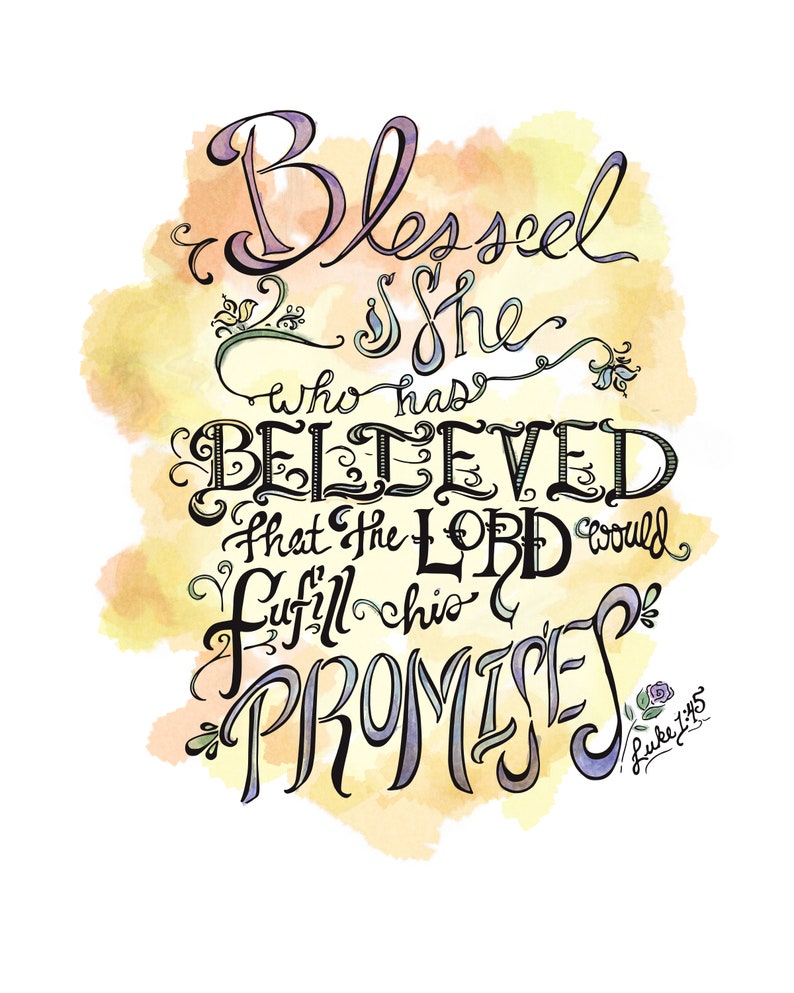 Blessed
is She
who has
BELIEVED
that the LORD would
fufill his
PROMISES
Luke 1:45